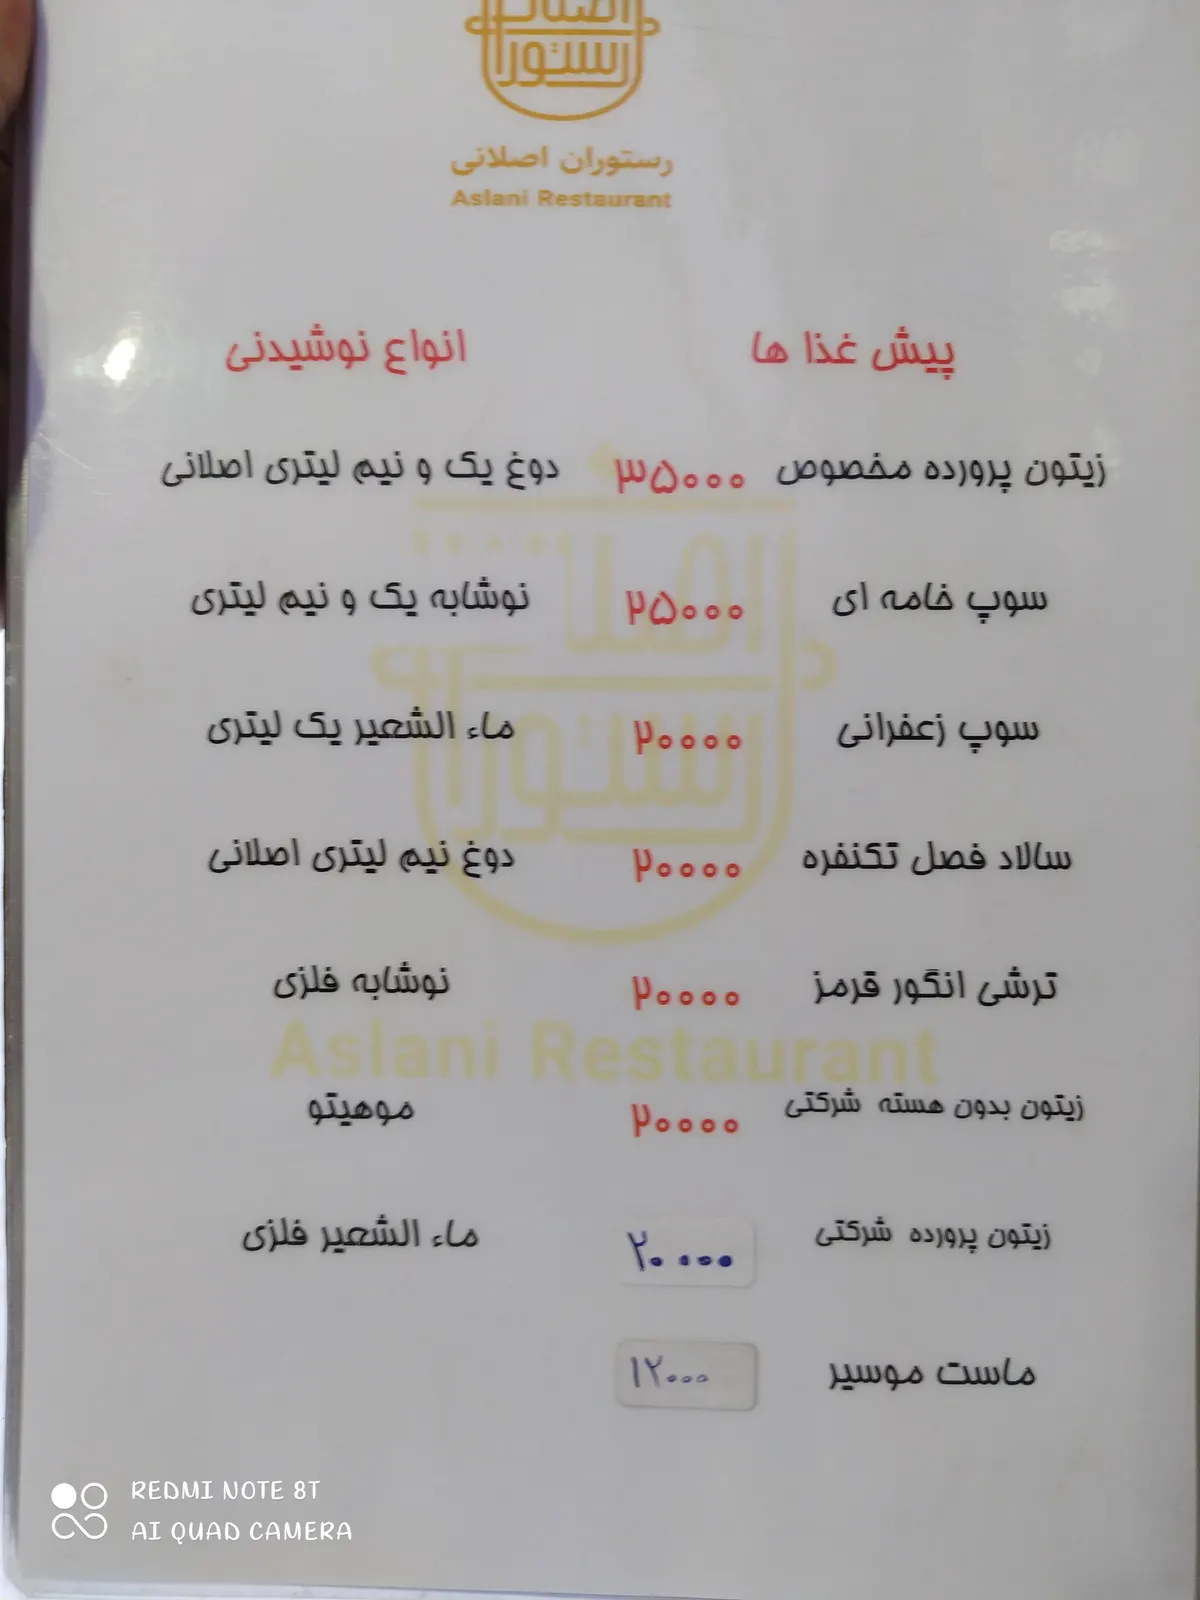 اصلانی
رستوران
رستوران اصلانی
Aslani Restaurant
پیش غذا ها
انواع نوشیدنی
زیتون پرورده مخصوص ۳۵۰۰۰ دوغ یک و نیم لیتری اصلانی
سوپ خامه ای ۲۵۰۰۰ نوشابه یک و نیم لیتری
سوپ زعفرانی ۲۰۰۰۰ ماء الشعیر یک لیتری
سالاد فصل تکنفره ۲۰۰۰۰ دوغ نیم لیتری اصلانی
ترشی انگور قرمز ۲۰۰۰۰ نوشابه فلزی
Aslani Restaurant
زیتون بدون هسته شرکتی ۲۰۰۰۰ موهیتو
زیتون پرورده شرکتی ۲۰۰۰۰ ماء الشعیر فلزی
ماست موسیر ۱۲۰۰۰
REDMI NOTE 8T
AI QUAD CAMERA